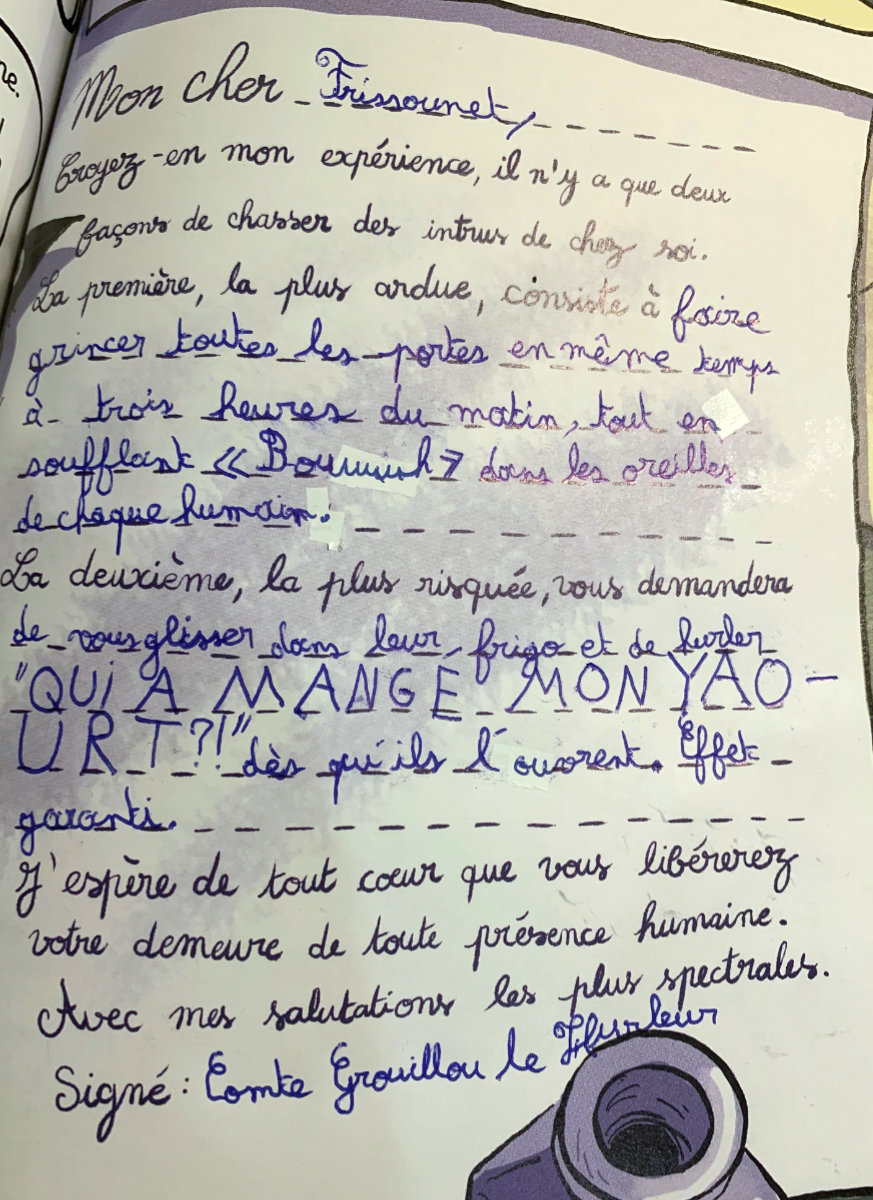 Mon cher Frissounet,
Croyez-en mon expérience, il n'y a que deux
façons de chasser des intrus de chez soi.
La première, la plus ardue, consiste à faire
grincer toutes les portes en même temps
à trois heures du matin, tout en
soufflant « Bouuuuh » dans les oreilles
de chaque humain.
La deuxième, la plus risquée, vous demandera
de vous glisser dans leur frigo et de hurler
"QUI A MANGÉ MON YAO-
URT?!" dès qu'ils l'ouvrent. Effet
garanti.
J'espère de tout cœur que vous libérerez
votre demeure de toute présence humaine.
Avec mes salutations les plus spectrales.
Signé : Comte Grouillou le Hurleur